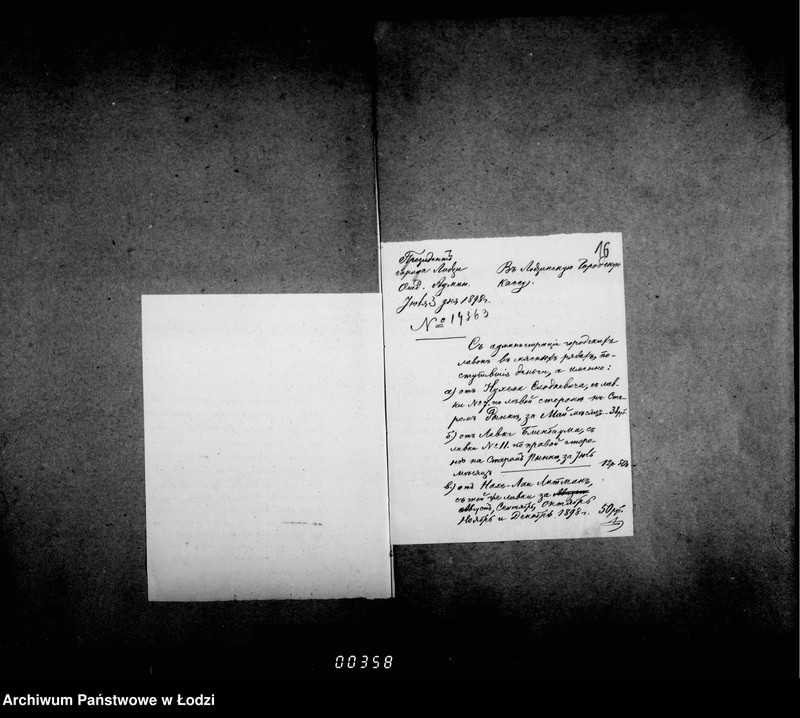 16
Президентъ
города Лодзи
Отд. Админ.
Іюля 3 дня 1898 г.
№ 19363
Въ Лодзинскую Городскую
Кассу.
Съ администраціи городскихъ
лавокъ въ мясныхъ рядахъ, по-
ступившія деньги, а именно:
а) отъ Нухема Слодкевича, съ лав-
ки № 7. по лѣвой сторонѣ на Ста-
ромъ Рынкѣ, за Май мѣсяцъ
б) отъ Лавки съ
лавки № 11. по правой сторо-
нѣ на Старомъ Рынкѣ, за Іюль
мѣсяцъ
в) отъ Литманъ,
съ той же лавки за
Августъ, Сентябрь, Октябрь
Ноябрь и Декабрь 1898 г. 50 руб.
00358
Archiwum Państwowe w Łodzi